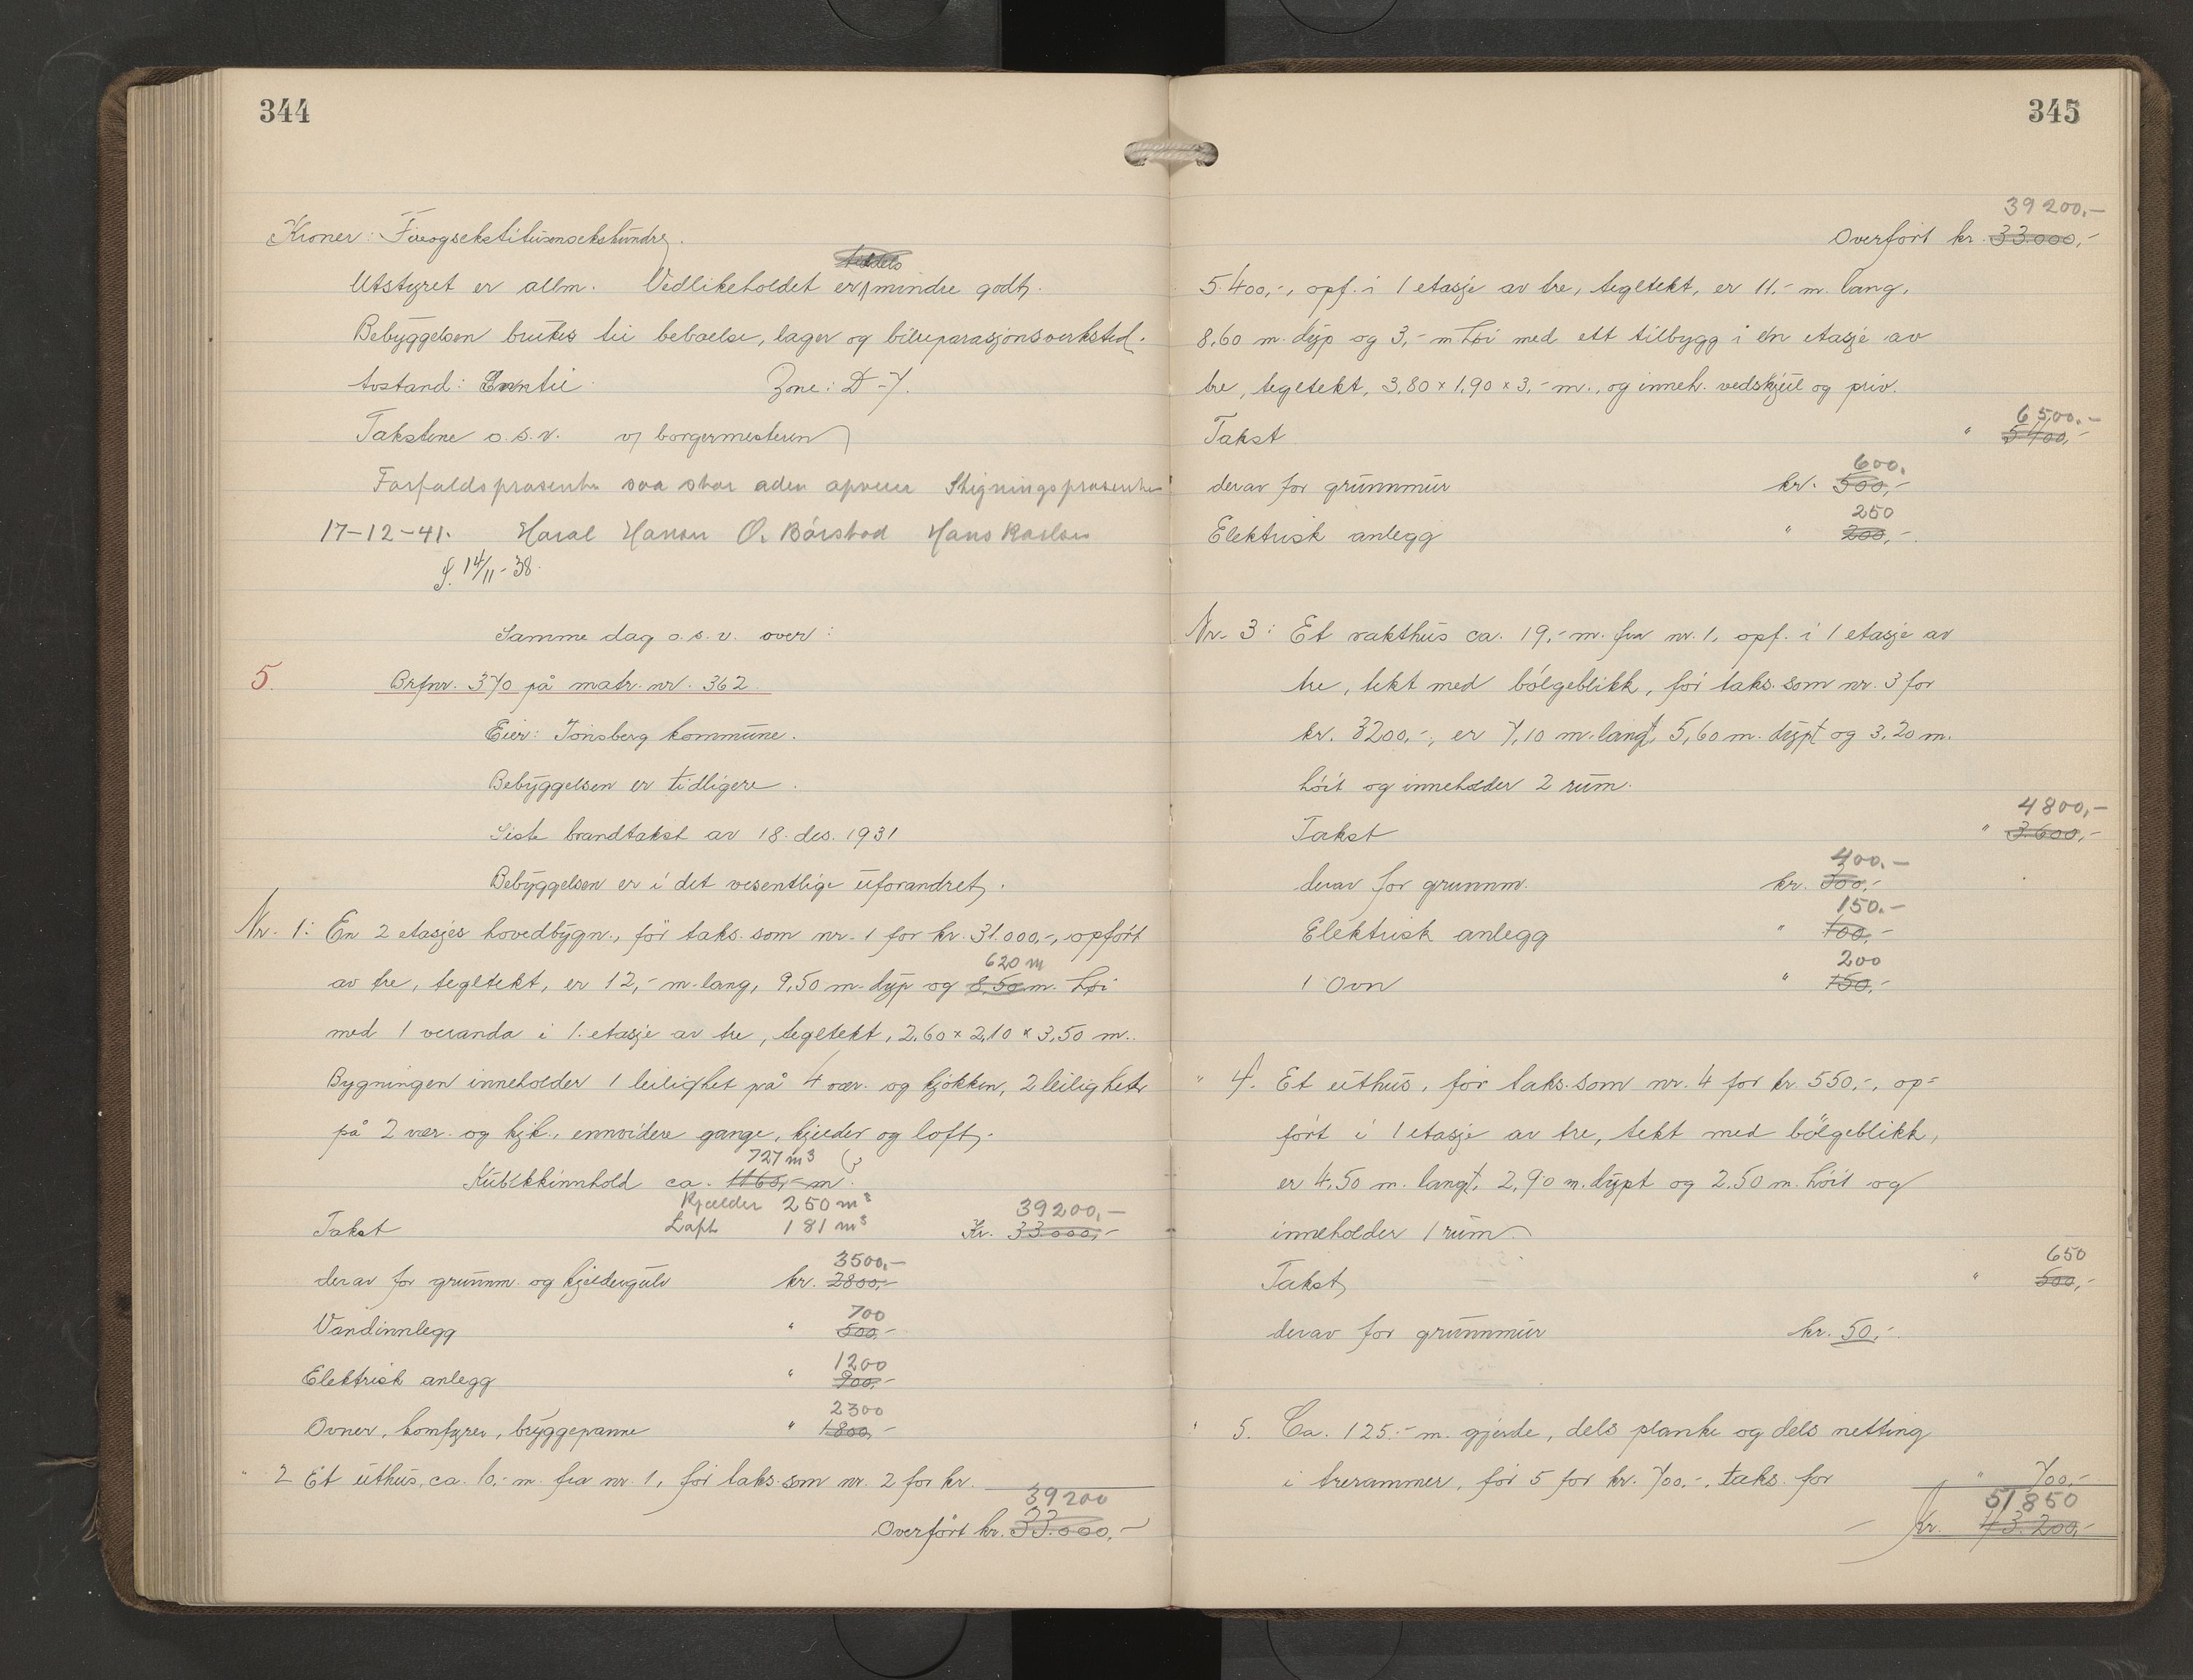 344
Kroner: Fireogsekstitusensekshundre.
Utstyret er allm. Vedlikeholdet er tildels mindre godt.
Bebyggelsen brukes til beboelse, lager og bilreparasjonsverksted.
Avstand: Inntil. Zone: D-7.
Takstene o.s.v. v/ borgermesteren
Forfaldsprosenten saa stor aden opveier Stigningsprosenten
17-12-41. Haral Hansen O. Bårstad Hans Karlsen
f. 14/11-38.
Samme dag o.s.v. over:
5. Brfnr. 370 på matr. nr. 362.
Eier: Tønsberg kommune.
Bebyggelsen er tidligere.
Siste brandtakst av 18. des. 1931
Bebyggelsen er i det vesentlige uforandret.
Nr. 1: En 2 etasjes hovedbygn., før taks. som nr. 1 for kr. 31.000,-, opført
620 m
av tre, tegltekt, er 12,- m. lang, 9,50 m. dyp og 8,50 m. høi
med 1 veranda i 1. etasje av tre, tegltekt, 2,60 × 2,10 × 3,50 m..
Bygningen inneholder 1 leilighet på 4 vær. og kjøkken, 2 leiligheter
på 2 vær. og kjk., ennvidere gange, kjelder og loft.
727 m3
Kubikkinnhold ca. 1165,- m3.
Kjælder 250 m3
Loft 181 m3
39200,-
Takst Kr. 33.000,-
3500,-
derav for grunnm. og kjeldergulv kr. 2800,-
700
Vandinnlegg " 500,-
1200
Elektrisk anlegg " 900,-
2300
Ovner, komfyrer, bryggepanne " 1800,-
" 2 Et uthus, ca. 10,- m. fra nr. 1, før taks. som nr. 2 for kr.
39200
Overført kr. 33.000,-
345
39200,-
Overført kr. 33.000,-
5.400,-, opf. i 1 etasje av tre, tegltekt, er 11,- m. lang,
8,60 m. dyp og 3,- m. høi med ett tilbygg i én etasje av
tre, tegltekt, 3,80 × 1,90 × 3,- m., og inneh. vedskjul og priv.
6500,-
Takst " 5400,-
600,
derav for grunnmur kr. 500,-
250
Elektrisk anlegg " 200,-.
Nr. 3: Et vakthus ca. 19,- m. fra nr. 1, opf. i 1 etasje av
tre, tekt med bølgeblikk, før taks. som nr. 3 for
kr. 3200,-, er 7,10 m. langt, 5,60 m. dypt og 3,20 m.
høit og inneholder 2 rum.
4800,-
Takst " 3.600,-
400,-
derav for grunnm. kr. 300,-
150,-
Elektrisk anlegg " 100,-
200
1 Ovn " 150,-
" 4. Et uthus, før taks. som nr. 4 for kr. 550,-, op=
ført i 1 etasje av tre, tekt med bølgeblikk,
er 4,50 m. langt, 2,90 m. dypt og 2,50 m. høit og
inneholder 1 rum.
650
Takst " 500,-
derav for grunnmur kr. 50,-.
" 5. Ca. 125,- m. gjerde, dels planke og dels netting
i trerammer, før 5 for kr. 700,-, taks. for " 700,-
51850
Kr. 43.200,-